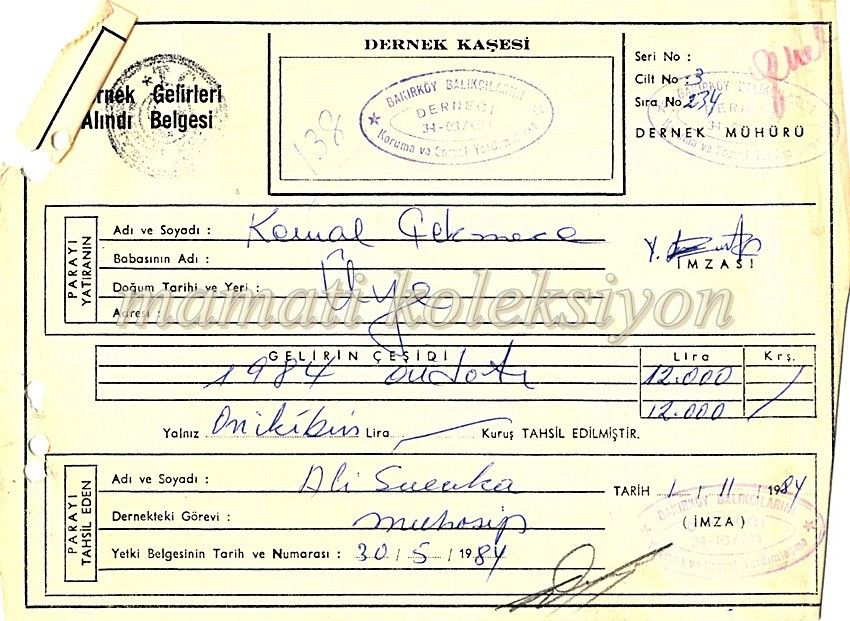 DERNEK KAŞESİ
Dernek Gelirleri
Alındı Belgesi
138
BAKIRKÖY BALIKÇILARINI
DERNEĞİ
Koruma ve Sosyal Yardımlaşma
Seri No :
Cilt No : 3
Sıra No 234
DERNEK MÜHÜRÜ
PARAYI YATIRANIN
Adı ve Soyadı : Kemal Çekmece
Babasının Adı :
Doğum Tarihi ve Yeri : Üye
Adresi :
İMZASI
mamati koleksiyon
GELİRİN ÇEŞİDİ Lira Krş.
1984 aidatı 12.000
12.000
Yalnız Onikibin Lira Kuruş TAHSİL EDİLMİŞTİR.
PARAYI TAHSİL EDEN
Adı ve Soyadı : Ali
TARİH 1 / 11 / 1984
Dernekteki Görevi : muhasip
(İMZA)
Yetki Belgesinin Tarih ve Numarası : 30 / 5 / 1984
BAKIRKÖY BALIKÇILARINI